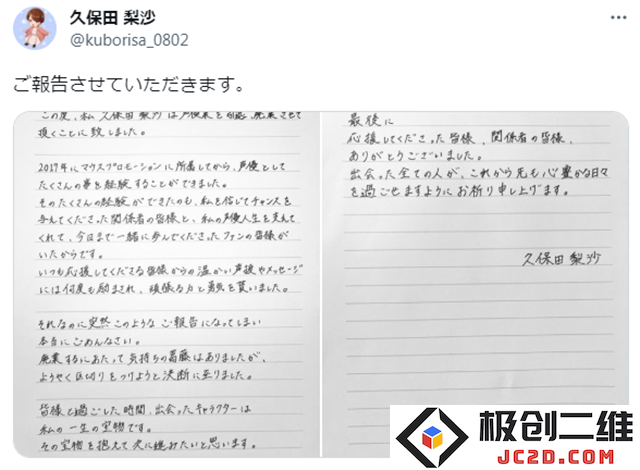 久保田 梨沙
@kuborisa_0802
ご報告させていただきます。
この度、私 久保田 梨沙 は声優業を 廃業させて
頂くことに致しました。
2017年にマウスプロモーションに所属してから、声優として
たくさんの事を経験することができました。
そのたくさんの経験ができたのも、私を信じてチャンスを
与えてくださった関係者の皆様と、私の声優人生を支えて
くれて、今日まで一緒に歩んでくださったファンの皆様が
いたからです。
いつも応援してくださる皆様からの温かい声援やメッセージ
には何度も励まされ、頑張る力と勇気を貰いました。
それなのに突然このような ご報告になってしまい
本当にごめんなさい。
廃業するにあたって気持ちの葛藤はありましたが、
ようやく区切りをつけようと決断に至りました。
皆様と過ごした時間、出会ったキャラクターは
私の一生の宝物です。
その宝物を抱えて次に進みたいと思います。
最後に
応援してくださった皆様、関係者の皆様、
ありがとうございました。
出会った全ての人が、これから先も心豊かな日々
を過ごせますようにお祈り申し上げます。
久保田 梨沙
极创二维
JC2D.COM